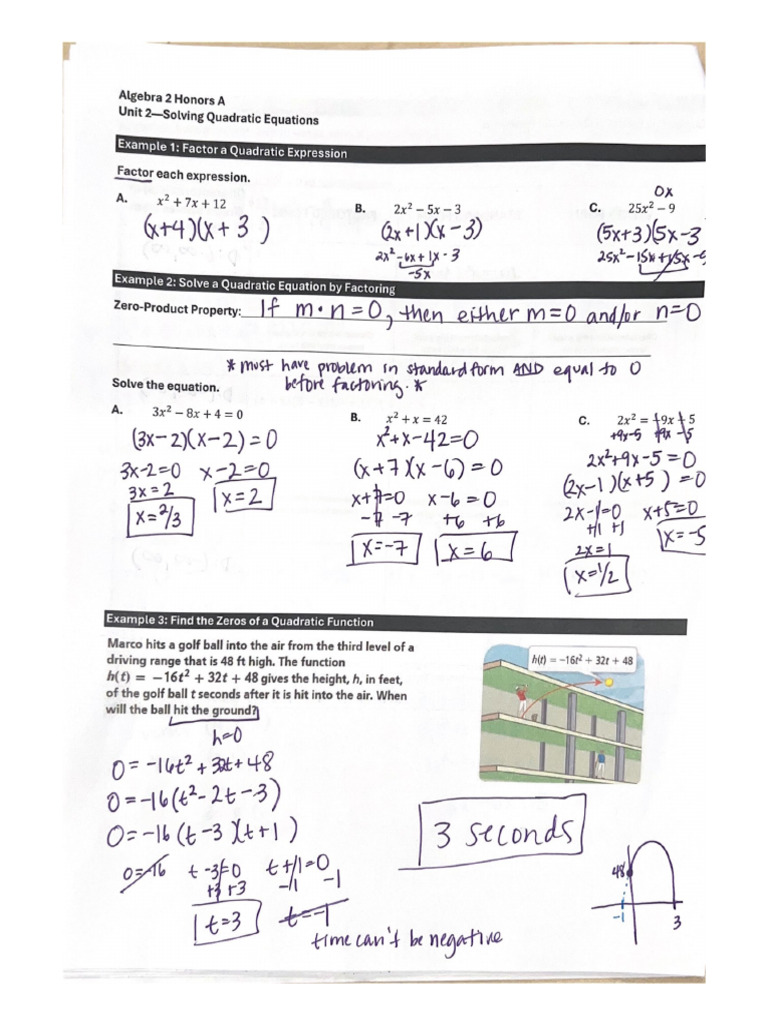 Algebra 2 Honors A
Unit 2—Solving Quadratic Equations
Example 1: Factor a Quadratic Expression
Factor each expression.
A. x² + 7x + 12
(x+4)(x+3)
B. 2x² − 5x − 3
(2x+1)(x−3)
2x²−6x+1x−3
−5x
0x
C. 25x² − 9
(5x+3)(5x−3
25x²−15x+15x−9
Example 2: Solve a Quadratic Equation by Factoring
Zero-Product Property: If m·n=0, then either m=0 and/or n=0
* must have problem in standard form AND equal to 0
before factoring. *
Solve the equation.
A. 3x² − 8x + 4 = 0
(3x−2)(x−2)=0
3x−2=0 x−2=0
3x=2 x=2
x=2/3
B. x² + x = 42
x²+x−42=0
(x+7)(x−6)=0
x+7=0 x−6=0
−7 −7 +6 +6
x=−7 x=6
C. 2x² = −9x + 5
+9x−5 +9x −5
2x²+9x−5=0
(2x−1)(x+5)=0
2x−1=0 x+5=0
+1 +1 x=−5
2x=1
x=1/2
Example 3: Find the Zeros of a Quadratic Function
Marco hits a golf ball into the air from the third level of a
driving range that is 48 ft high. The function
h(t) = −16t² + 32t + 48 gives the height, h, in feet,
of the golf ball t seconds after it is hit into the air. When
will the ball hit the ground?
h(t) = −16t² + 32t + 48
h=0
0=−16t²+32t+48
0=−16(t²−2t−3)
0=−16(t−3)(t+1)
0=−16 t−3=0 t+1=0
+3 +3 −1 −1
t=3 t=−1
time can't be negative
3 seconds
48
−1 3